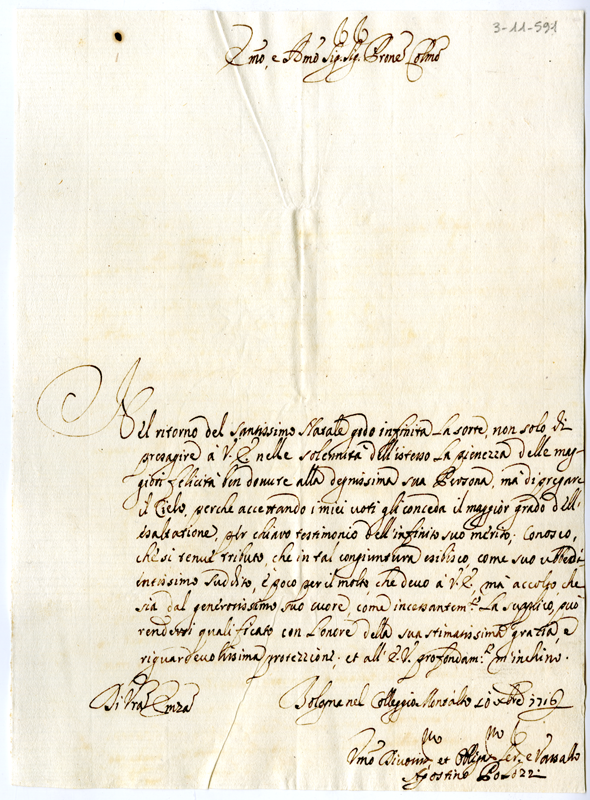 3-11-591
Emo, e Rmo Sig. Sig. Prone Colmo
Nel ritorno del Santissimo Natale godo infinita la sorte, non solo di
presagire à V. E. nelle solennità dell'istesso la pienezza delle mag-
giori felicità ben dovute alla degnissima sua Persona, mà di pregare
il Cielo, perche accettando i miei voti gli conceda il maggior grado d'ell'
esaltatione, per chiaro testimonio dell'infinito suo merito. Conosco,
che si tenue tributo, che in tal congiuntura esibisco come suo ubbedi
entissimo suddito, è poco per il molto, che devo à V. E., ma accolto, che
sia dal generosissimo suo cuore, come incessantem.te La supplico, può
rendersi qualificato con l'onore della sua stimatissima gratia, e
riguardevolissima protezzione. et all' E. V. profondam.te m'inchino.
Di Vra Emza
Bologna nel Colleggio Montalto 10 Xbre 1716
Vmo Divotmo et Obligmo Ser. e Vassallo
Agostino